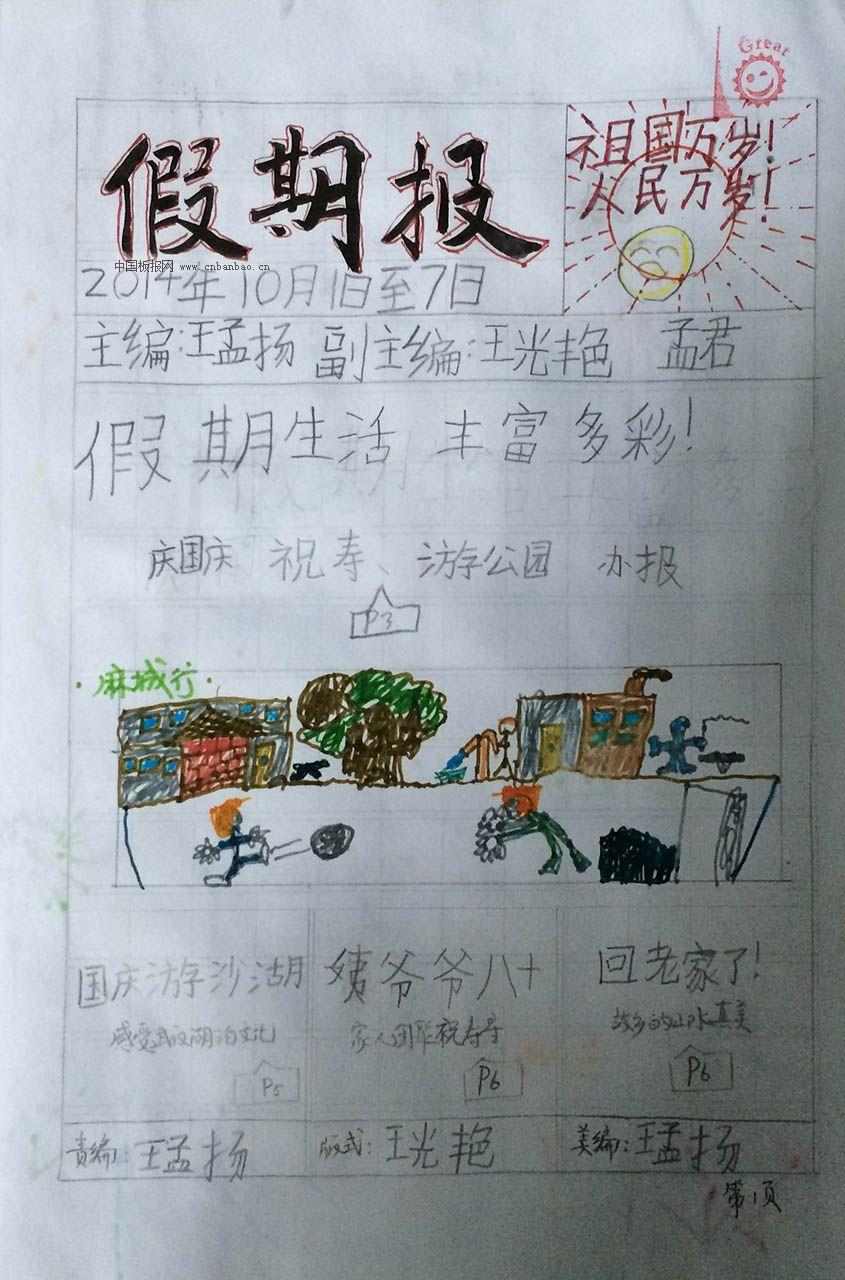 Great
假期报
祖国万岁!
人民万岁!
中国板报网 www.cnbanbao.cn
2014年10月1日至7日
主编:王孟扬 副主编:王光艳 孟君
假期生活 丰富多彩!
庆国庆 祝寿、游公园 办报
P3
·麻城行·
国庆游沙湖 姨爷爷八十 回老家了!
感受武汉湖泊文化 家人团聚祝寿辰 故乡的山水真美
P5 P6 P6
责编:王孟扬 版式:王光艳 美编:王孟扬
第1页